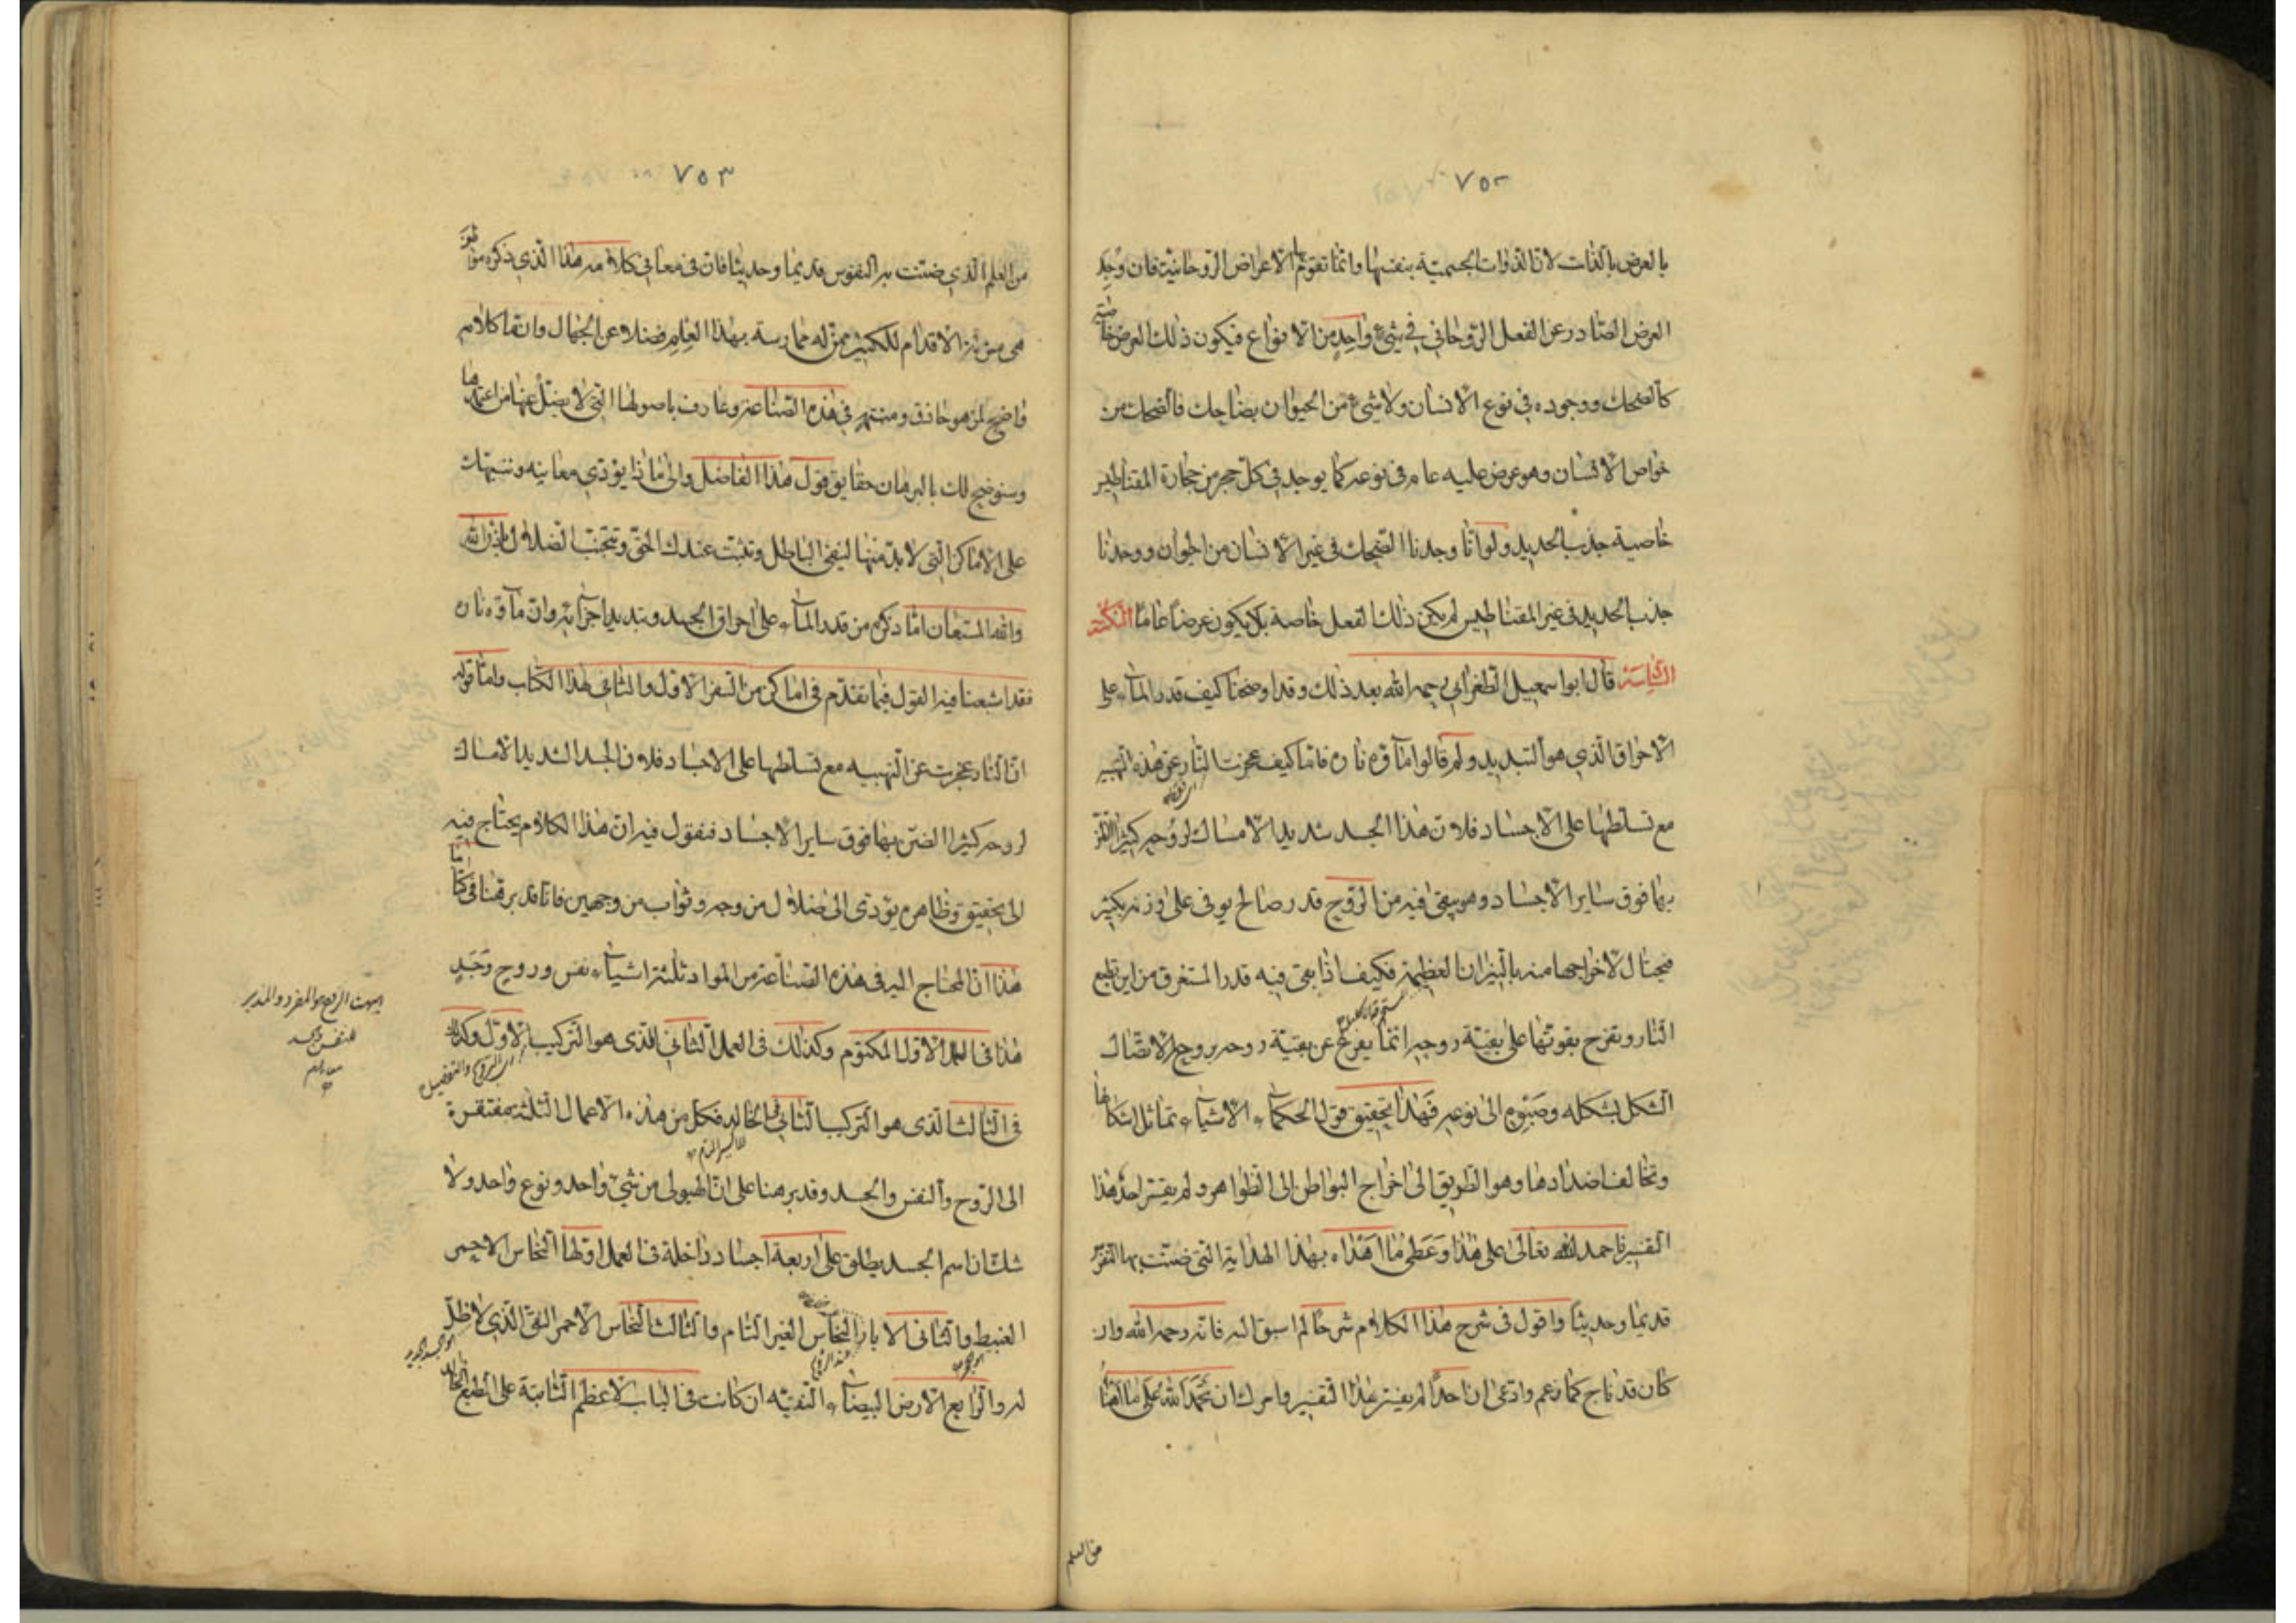 ٧٥٢
بالعرض بالذات لان الذوات الجسمية بنفسها وانما تقوم بها الاعراض الروحانية فان وجد
العرض الصادر عن الفعل الروحاني في شيء واحد من الانواع فيكون ذلك العرض خاصته
كالضحك ووجوده في نوع الانسان ولا شيء من الحيوان بضاحك فالضحك من
خواص الانسان وهو عرض عليه عام في نوعه كما يوجد في كل حجر من حجارة المقناطيس
خاصية جذب الحديد ولو انا وجدنا الضحك في غير الانسان من الحيوان ووجدنا
جذب الحديد في غير المقناطيس لم يكن ذلك الفعل خاصة بل يكون عرضا عاما النكتة
قال ابو اسمعيل الطغرائي رحمه الله بعد ذلك وقد اوضحنا كيف قدر الماء على
الاحراق الذي هو التبديد ولم قالوا ماؤه نار فاما كيف عجزت النار عن هذه
مع تسلطها على الاجساد فلان هذا الجسد شديد الامساك لروحه كثير
بها فوق ساير الاجساد وهو يبقى فيه من الروح قدر صالح يوفى على وزنه بكثير
فيحتال لاخراجها منه بالنيران العظيمة فكيف اذا بقى فيه قدر المستغرق من اين تطمع
النار وتفرح بقوتها على بقية روحه انما يفرغ عن بقية روحه بروحه لاتصال
الشكل بشكله وصبوه الى نوعه فهذا تحقيق قول الحكماء الاشياء تماثل اشكالها
وتخالف اضدادها وهو الطريق الى اخراج البواطن الى الظواهر ولم يفسر احد هذا
التفسير فاحمد الله تعالى على هذا وعظم ما اهداه بهذا الهداية التي ضنت بها
قديما وحديثا واقول في شرح هذا الكلام شرحا لم اسبق اليه فانه رحمه الله وان
كان قد ناح كما زعم وادعى ان احدا لم يفسر هذا التفسير وامرك ان تحمد الله على ما
من العلم
٧٥٣
من العلم الذي ضنت به النفوس قديما وحديثا فان في معاني كلامه هذا الذي ذكره
هي مزلة الاقدام للكثير ممن له ممارسة بهذا العلم فضلا عن الجهال وانما كلامه
واضح لمن هو حاذق ومنتهر في هذه الصناعة وعارف باصولها التي لا يضل عنها من
وسنوضح لك بالبرهان حقايق قول هذا الفاضل والى ماذا يؤدي معانيه وننبهك
على الاماكن التي لا بد منها لينفى الباطل ويثبت عندك الحق وتتجنب الضلال باذن الله
والله المستعان اما ذكره من قدر الماء على احراق الجسد وتبديد اجزائه وان ماؤه نار
فقد اشبعنا فيه القول فيما تقدم في اماكن من السفر الاول والثاني لهذا الكتاب واما قوله
ان النار عجزت عن التهبيه مع تسلطها على الاجساد فلان الجسد الشديد الامساك
لروحه كثير الضن بها فوق ساير الاجساد فنقول فيه ان هذا الكلام يحتاج فيه
الى تحقيق وظاهره يؤدى الى ضلال من وجه وثواب من وجهين فانا قد برهنا في كتابنا
هذا ان المحتاج اليه في هذه الصناعة من المواد ثلثة اشياء نفس وروح وجسد
هذا في العمل الاول المكتوم وكذلك في العمل الثاني الذى هو التركيب الاول وكذلك
في الثالث الذى هو التركيب الثاني الخالد فكل من هذه الاعمال الثلثة مفتقرة
الى الروح والنفس والجسد وقد برهنا على ان الهيولى من شيء واحد ونوع واحد ولا
شك ان اسم الجسد يطلق على اربعة اجساد داخلة في العمل اولها النحاس الاحمر
الغبيط والثاني الابار النحاس الغير التام والثالث النحاس الاحمر النقي الذي لا ظل
له والرابع الارض البيضاء النقيه ان كانت في الباب الاعظم الثابتة على الطبع